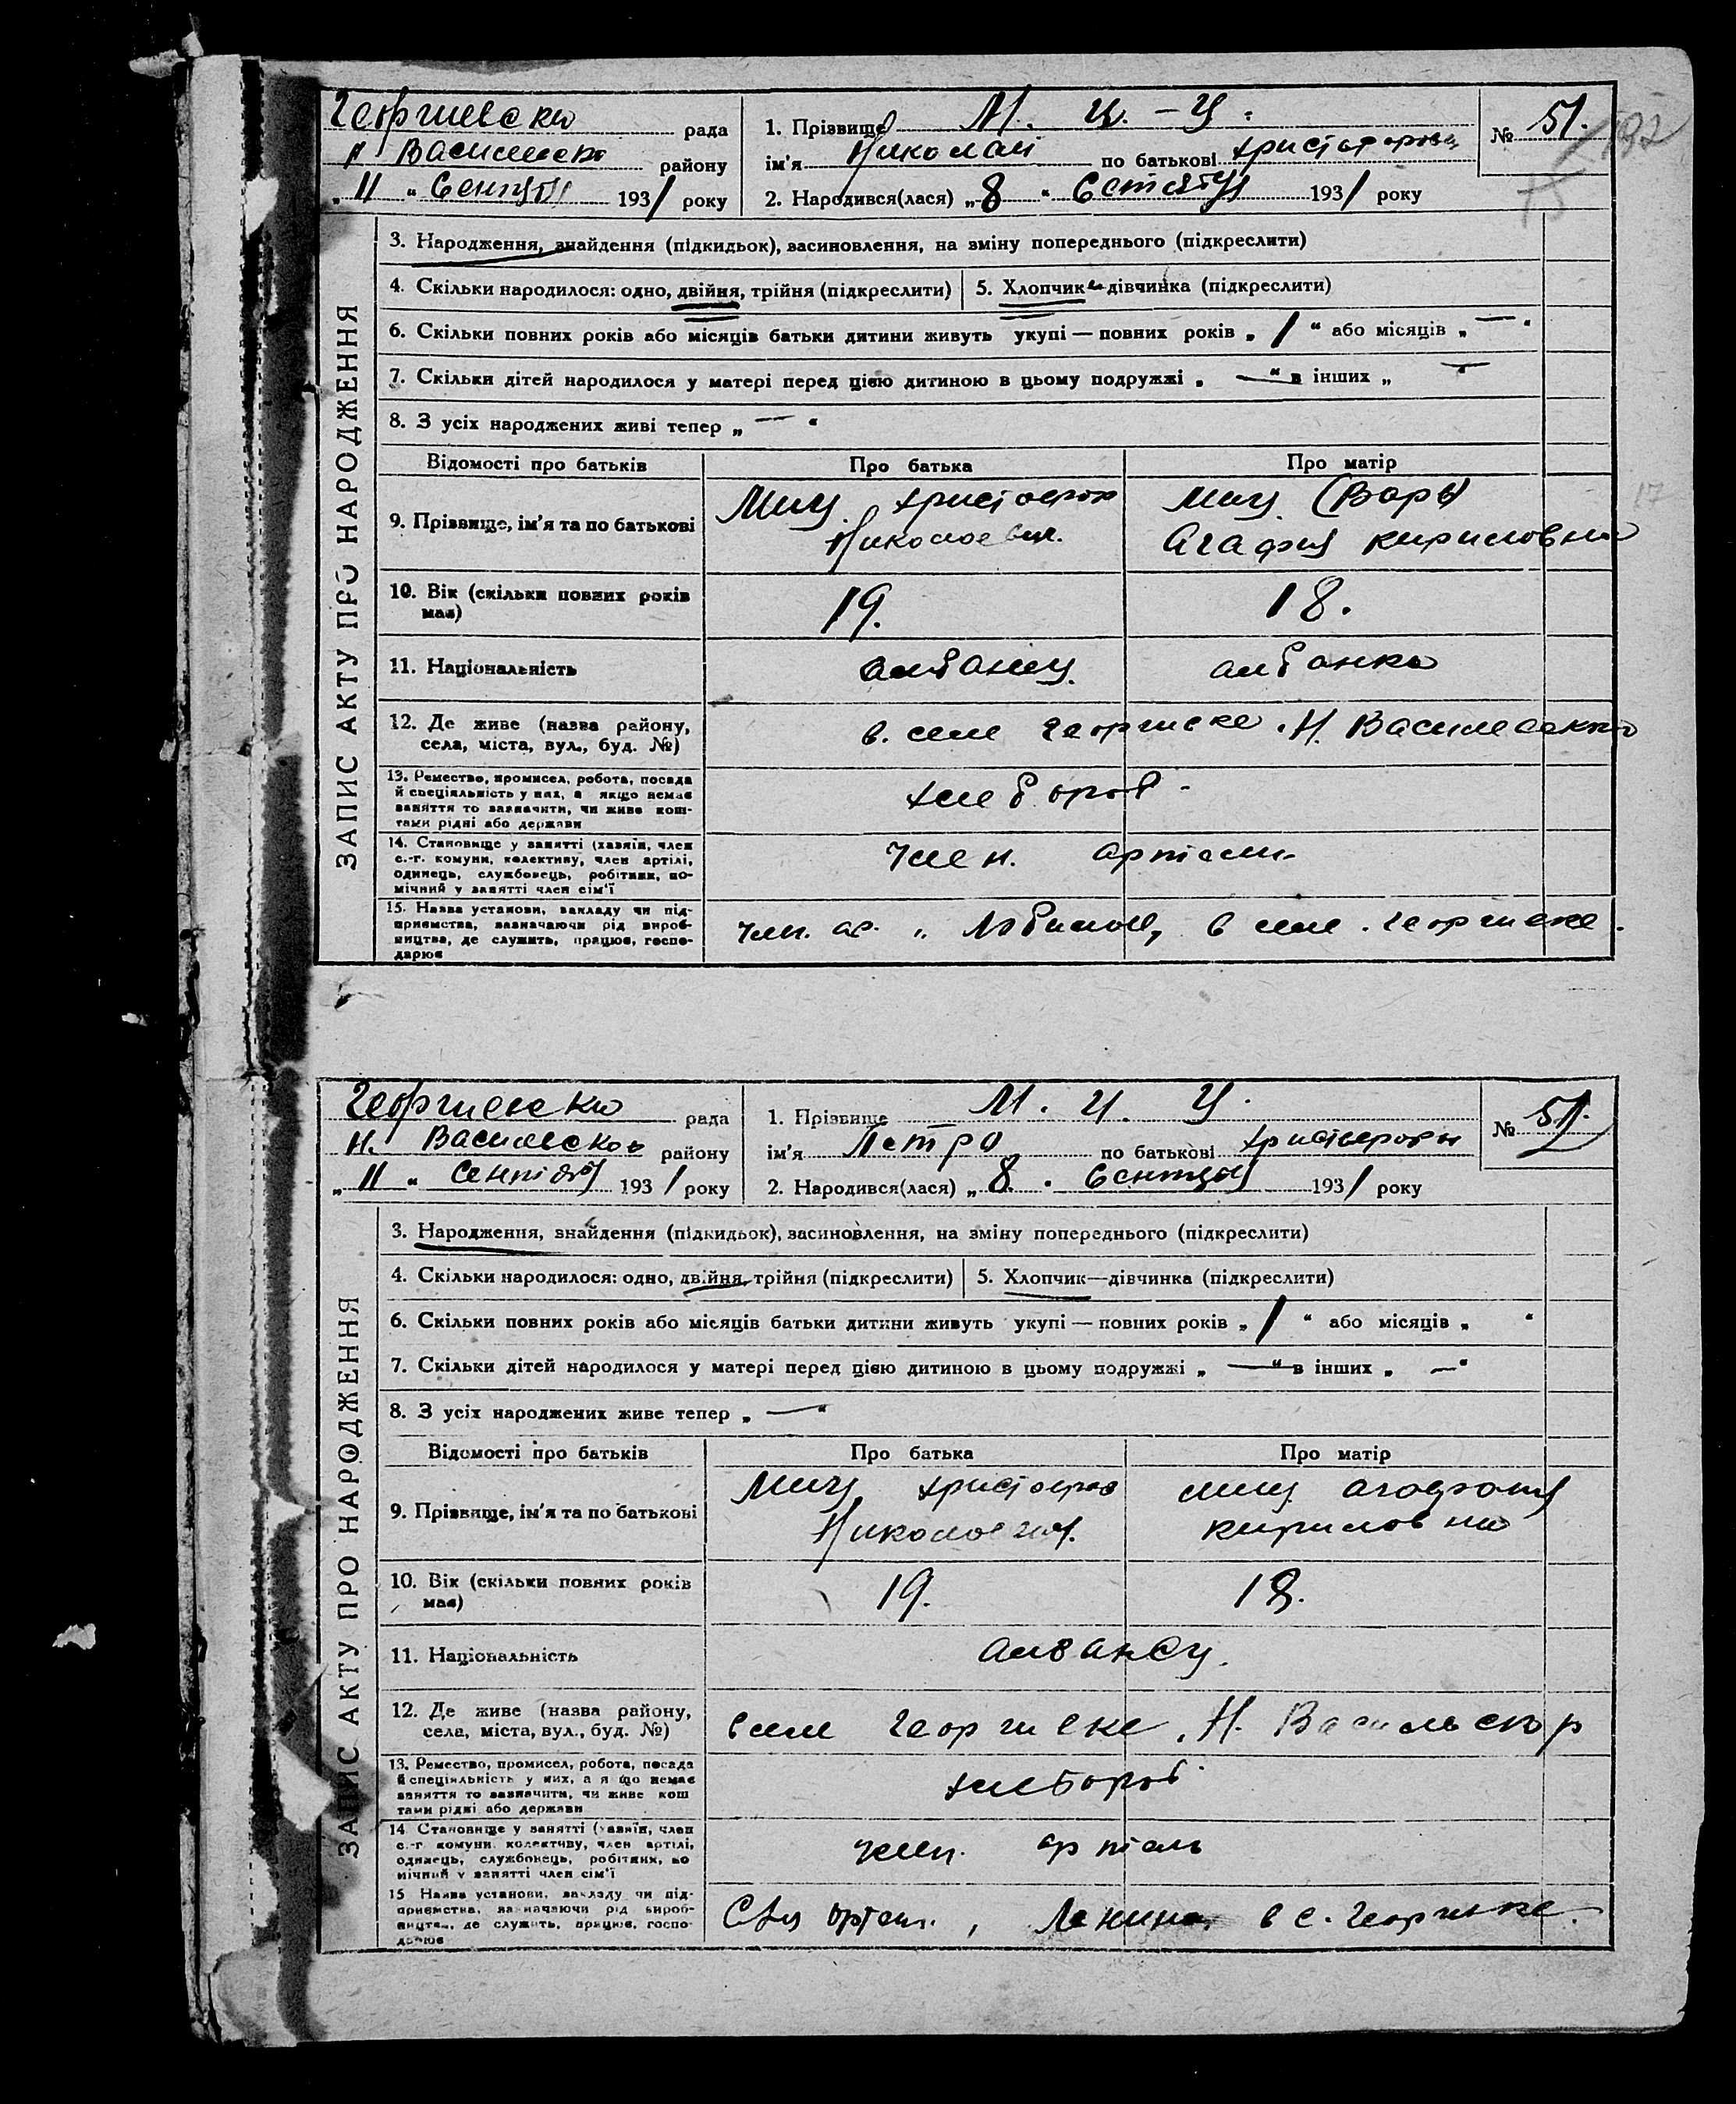 Георгиевска рада
Н Василевско району
„ 11 “ Сентябр 1931 року
1. Прізвище М. и. – Ц.
ім'я Николай по батькові Христофоров
2. Народився(лася) „ 8 “ 1931 року
№ 51.
192
ЗАПИС АКТУ ПРО НАРОДЖЕННЯ
3. Народження, знайдення (підкидьок), васиновлення, на зміну попереднього (підкреслити)
4. Скільки народилося: одно, двійня, трійня (підкреслити) 5. Хлопчик—дівчинка (підкреслити)
6. Скільки повних років або місяців батьки дитини живуть укупі — повних років „ 1 “ або місяців „ — “
7. Скільки дітей народилося у матері перед цією дитиною в цьому подружжі „ — “ в інших „ —
8. З усіх народжених живі тепер „ — “
Відомості про батьків Про батька Про матір
9. Прізвище, ім'я та по батькові Миц Христофор Николоевич. Миц (Вары Агафия Кириловна
17
10. Вік (скільки повних років має) 19. 18.
11. Національність албанец. албанка
12. Де живе (назва району, села, міста, вул., буд. №) в. селе Георгиеке. Н. Василевско
13. Ремество, промисел, робота, посада й спеціяльність у них, а якщо немає заняття то зазначити, чи живе коштами рідні або держави хлебороб -
14. Становище у занятті (хазяїн, член с.-г. комуни, колективу, член артілі, одинець, службовець, робітник, помічний у занятті член сім'ї член. артели
15. Назва установи, закладу чи підприємства, зазначаючи рід виробництва, де служить, працює, господарює член. ар. „ в селе. Георгиеке.
Георгиевска рада
Н. Василевско району
„ 11 “ Сентябр 1931 року
1. Прізвище М. и. Ц.
ім'я Петро по батькові Христофоров
2. Народився(лася) „ 8. “ Сентября 1931 року
№ 51.
2
ЗАПИС АКТУ ПРО НАРОДЖЕННЯ
3. Народження, знайдення (підкидьок), васиновлення, на зміну попереднього (підкреслити)
4. Скільки народилося: одно, двійня, трійня (підкреслити) 5. Хлопчик—дівчинка (підкреслити)
6. Скільки повних років або місяців батьки дитини живуть укупі — повних років „ 1 “ або місяців „ “
7. Скільки дітей народилося у матері перед цією дитиною в цьому подружжі „ — “ в інших „ — “
8. З усіх народжених живе тепер „ — “
Відомості про батьків Про батька Про матір
9. Прізвище, ім'я та по батькові Миц Христофор Николоевич. Миц Кириловна
10. Вік (скільки повних років має) 19. 18.
11. Національність
12. Де живе (назва району, села, міста, вул., буд. №) в селе Георгиеке. Н. Васильевскор
13. Ремество, промисел, робота, посада й спеціяльність у них, а якщо немає заняття то зазначити, чи живе коштами рідні або держави хлебороб
14. Становище у занятті (хазяїн, член с.-г. комуни, колективу, член артілі, одинець, службовець, робітник, помічний у занятті член сім'ї член. артель
15 Назва установи, закладу чи підприємства, зазначаючи рід виробництва, де служить, працює, господарює артел. , Ленина. в с. Георгиеке.